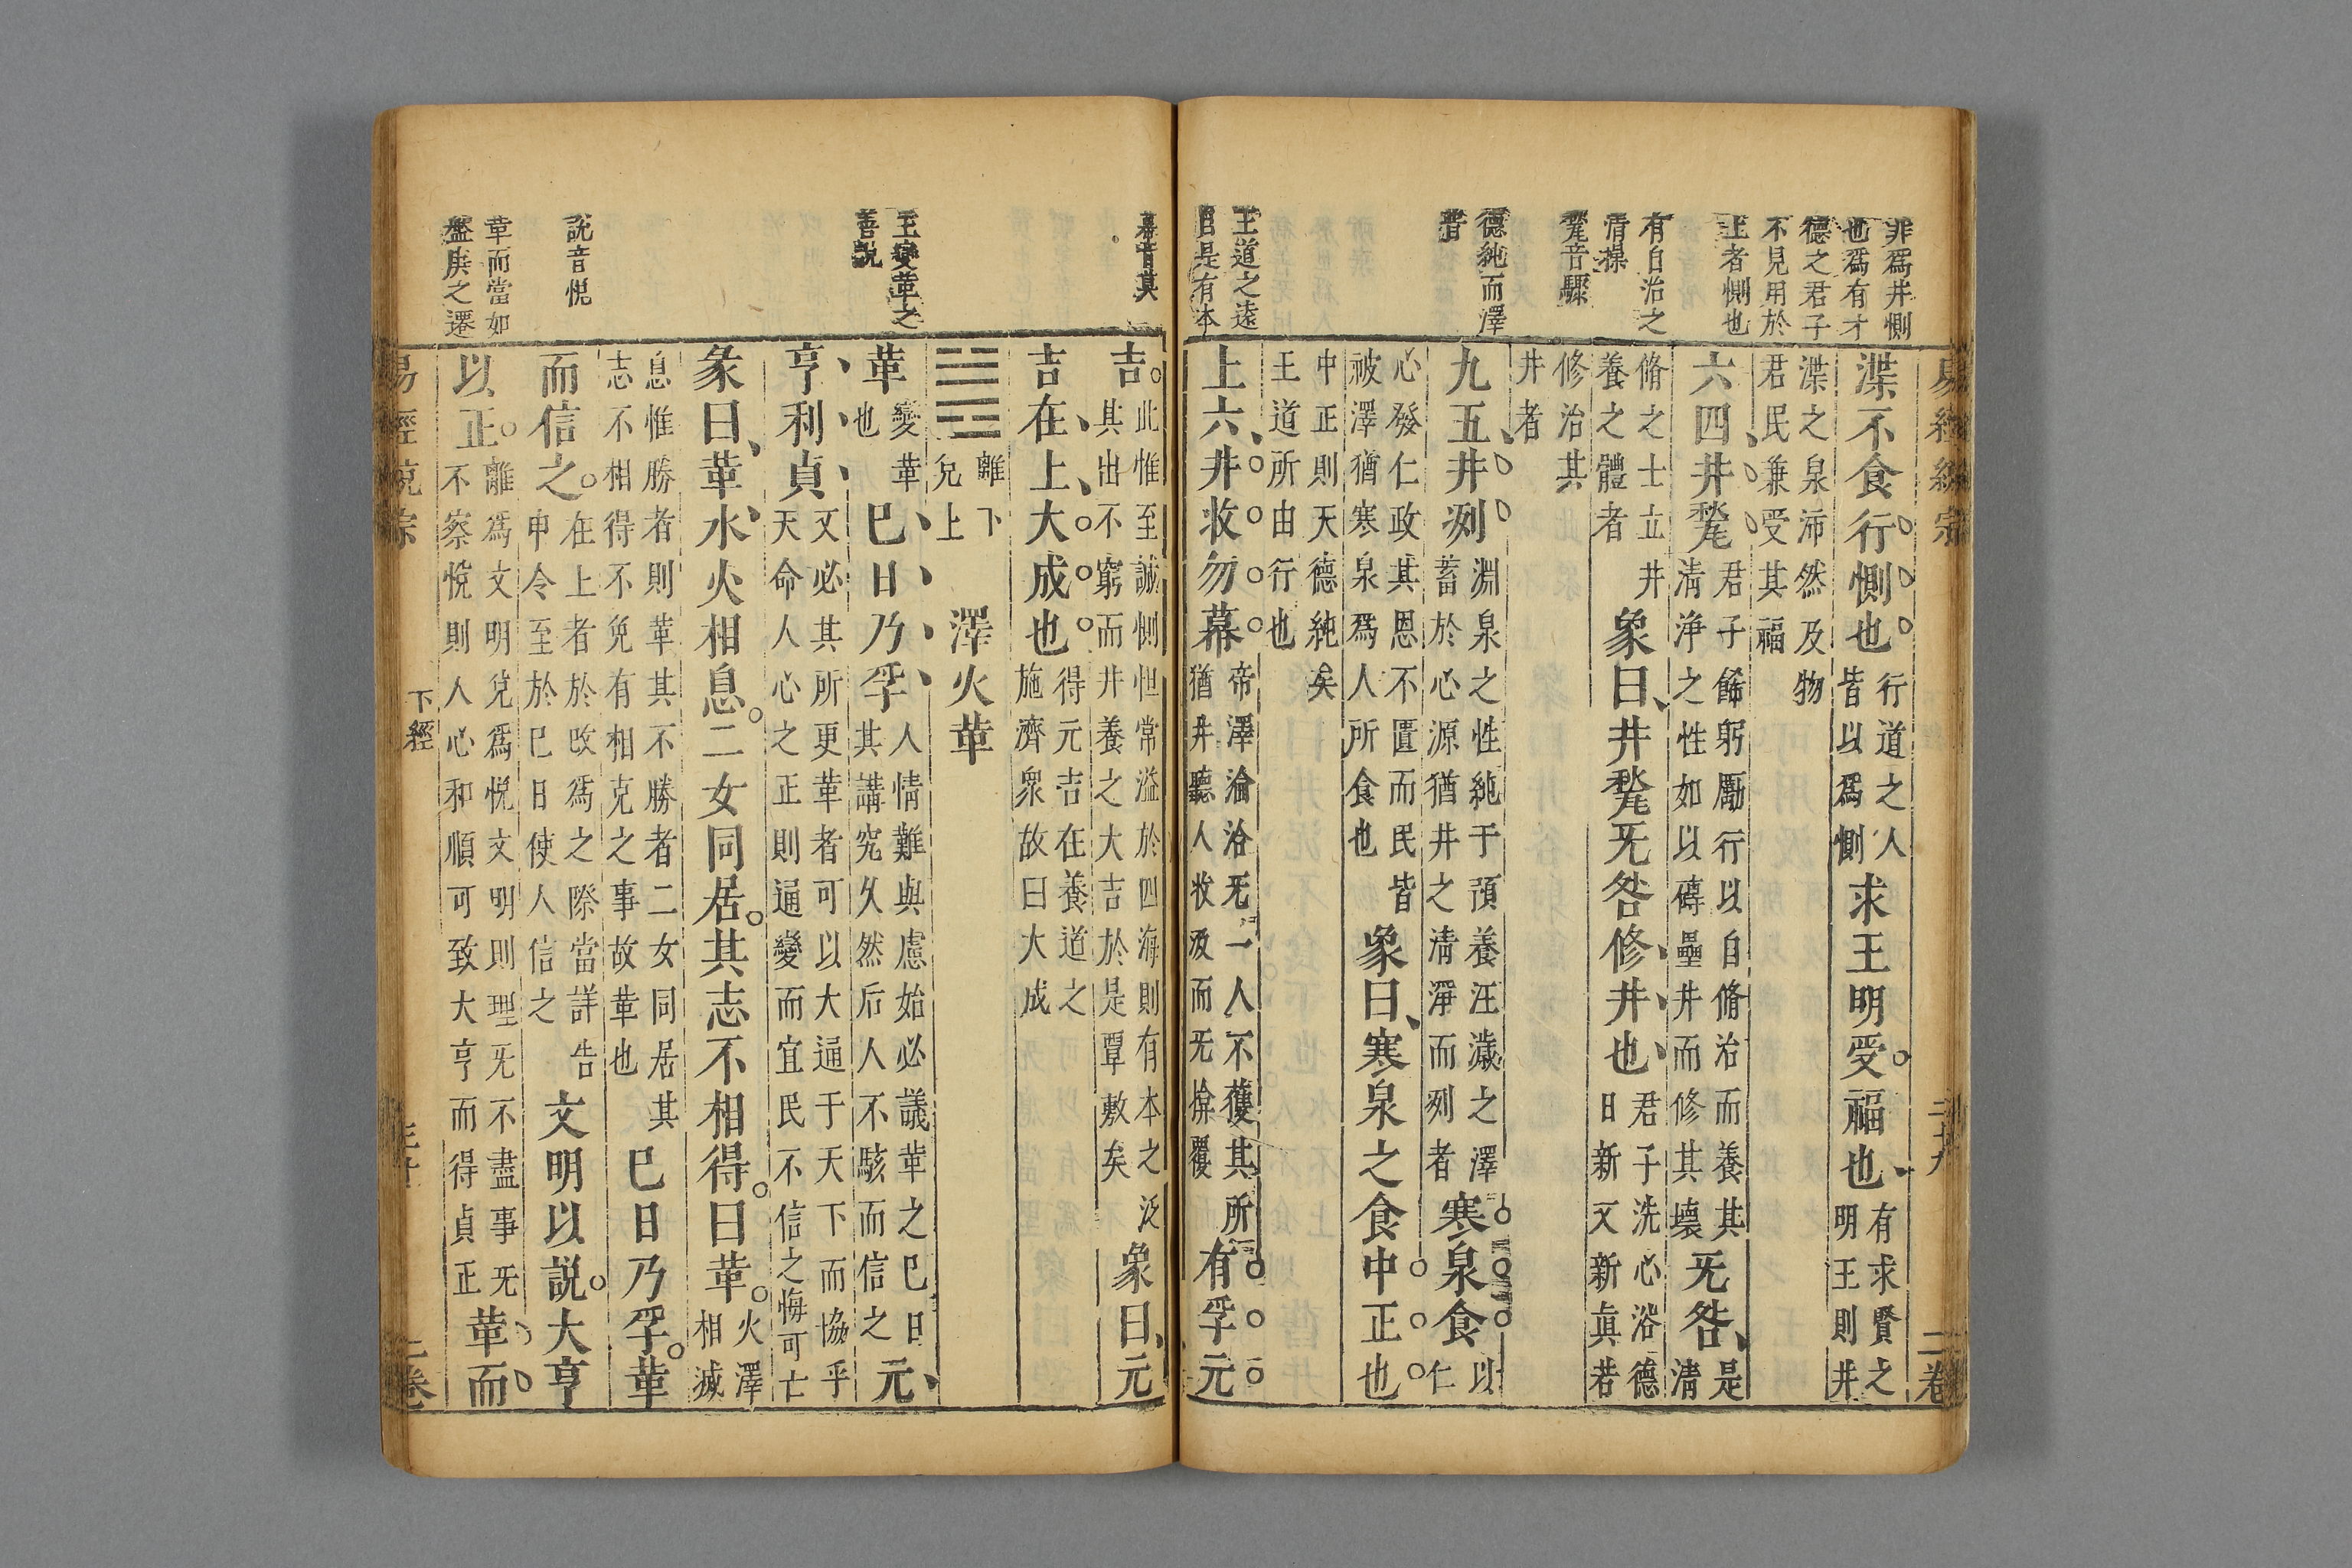 非爲井惻
也爲有才
德之君子
不見用於
上者惻也
有自治之
清操
甃音驟
德純而澤
普
王道之遠
自是有本
渫不食行惻也
行道之人
皆以爲惻
求王明受福也
有求賢之
明王則井
渫之泉沛然及物
君民兼受其福
六四井甃
君子餙躬勵行以自脩治而養其
清淨之性如以磚壘井而修其壞
旡咎
是
清
脩之士立井
養之體者
象曰井甃旡咎修井也
君子洗心浴德
日新又新眞若
修治其
井者
九五井洌
淵泉之性純于預養汪濊之澤
蓄於心心源猶井之清淨而洌者
寒泉食
以
仁
心發仁政其恩不匱而民皆
被澤猶寒泉爲人所食也
象曰寒泉之食中正也
中正則天德純矣
王道所由行也
上六井收勿幕
帝澤淪洽旡一人不獲其所
猶井聽人收汲而旡揜覆
有孚元
幕音莫
主變革之
善說
說音悅
革而當如
盤庚之遷
吉
此惟至誠惻怛常溢於四海則有本之泛
其出不窮而井養之大吉於是覃敷矣
象曰元
吉在上大成也
得元吉在養道之
施濟衆故曰大成
離下
兌上
澤火革
革
變革
也
巳日乃孚
人情難與慮始必議革之巳日
其講究久然后人不駭而信之
元
亨利貞
又必其所更革者可以大通于天下而協乎
天命人心之正則通變而宜民不信之悔可亡
彖曰革水火相息二女同居其志不相得曰革
火澤
相滅
息惟勝者則革其不勝者二女同居其
志不相得不免有相克之事故革也
巳日乃孚革
而信之
在上者於改爲之際當詳告
申令至於巳日使人信之
文明以説大亨
以正
離爲文明兌爲悅文明則理旡不盡事旡
不察悅則人心和順可致大亨而得貞正
革而
下經
二卷